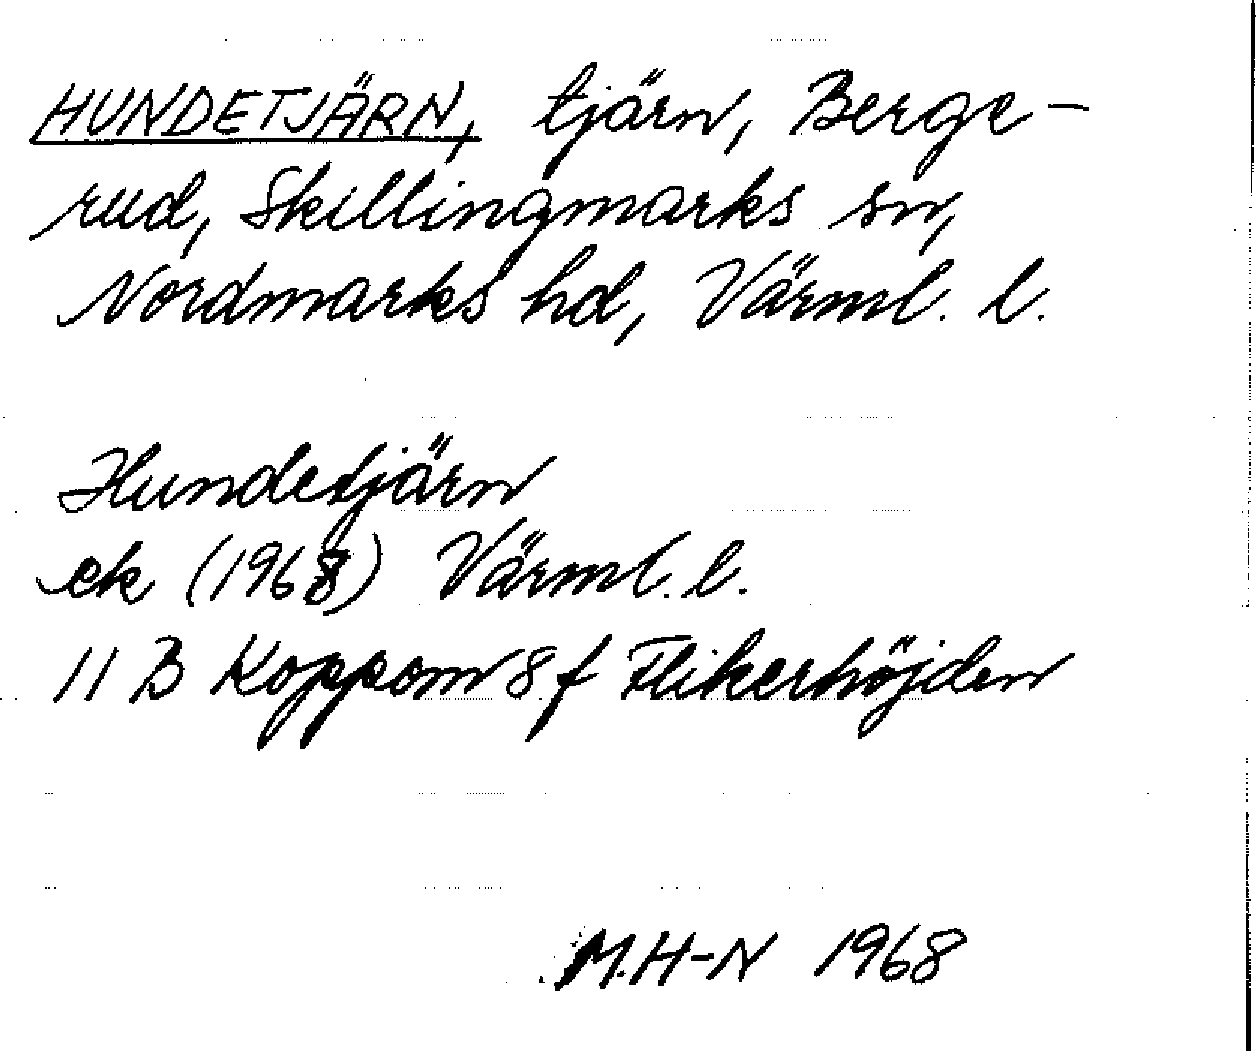 HUNDETJÄRN, tjärn, Berge-
rud, Skillingmarks sn,
Nordmarks hd, Värml. l.
Hundetjärn
ek (1968) Värml. l.
11 B Koppom 8 f Flikerhöjden
M.H-N 1968